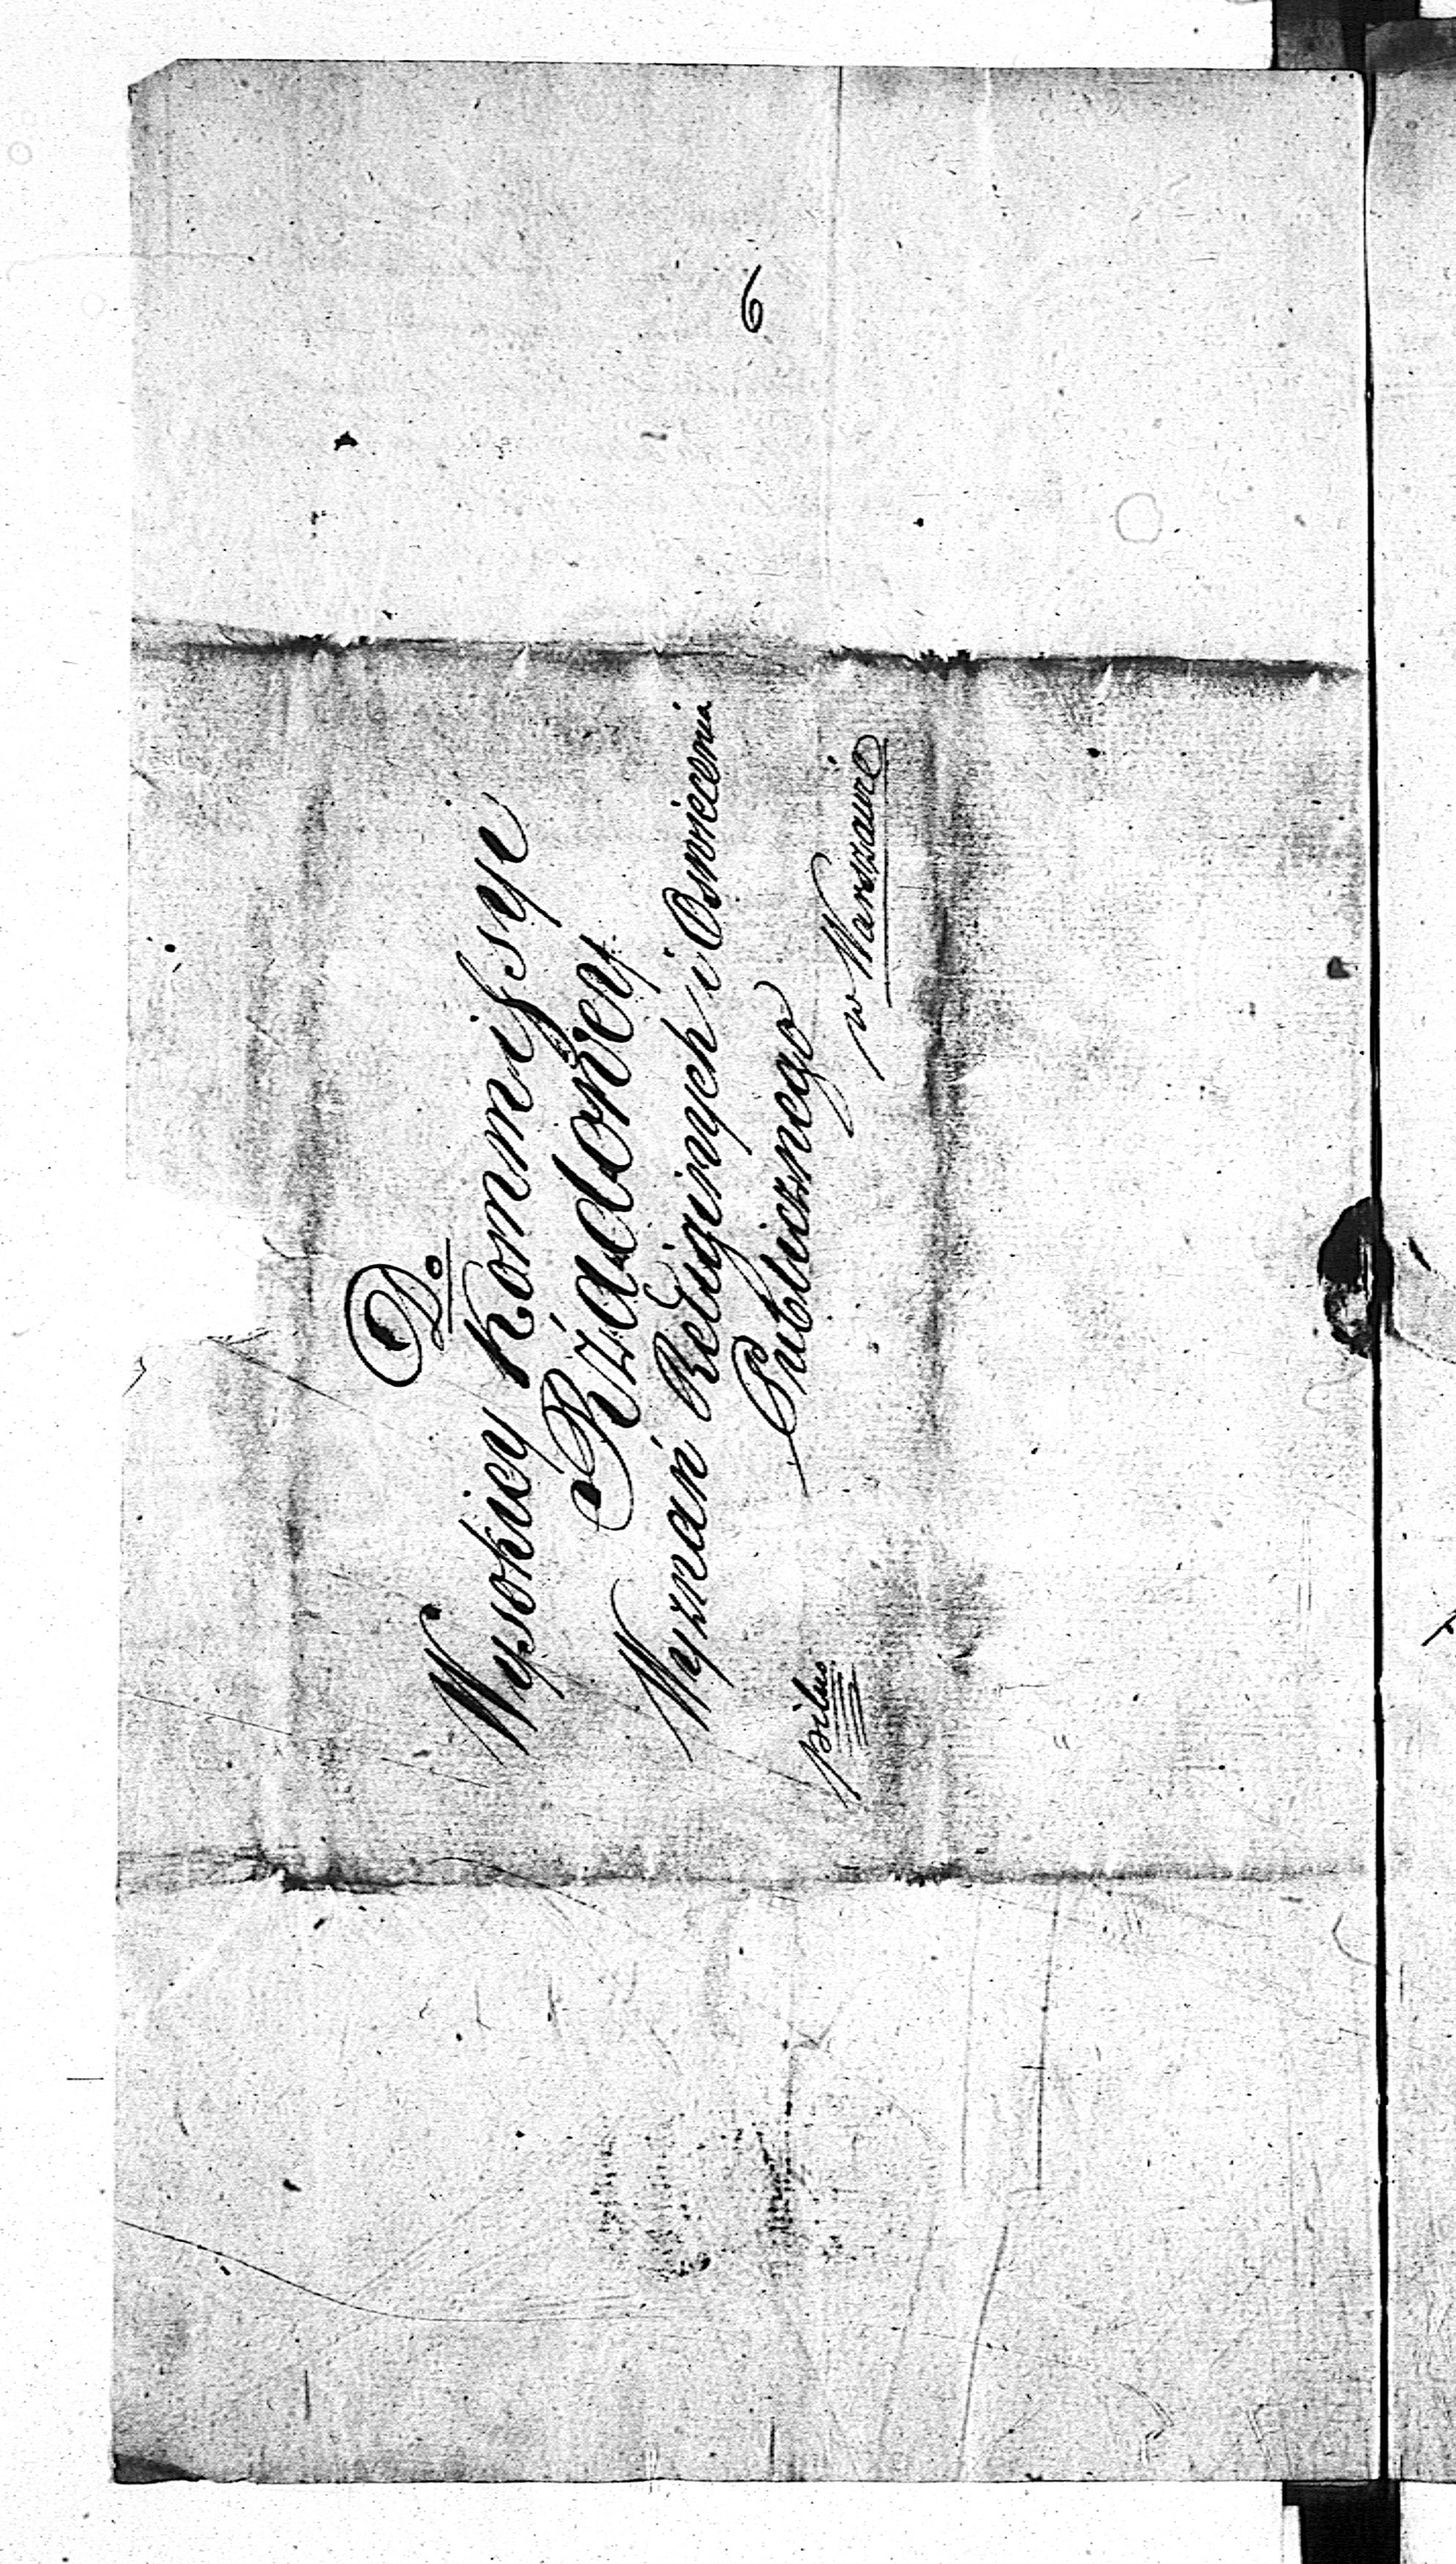 6
Do
Wysokiey Kommissyi
Rządowey
Wyznań Religinych i Oswiecenia
Publicznego
w Warszawie
pilno